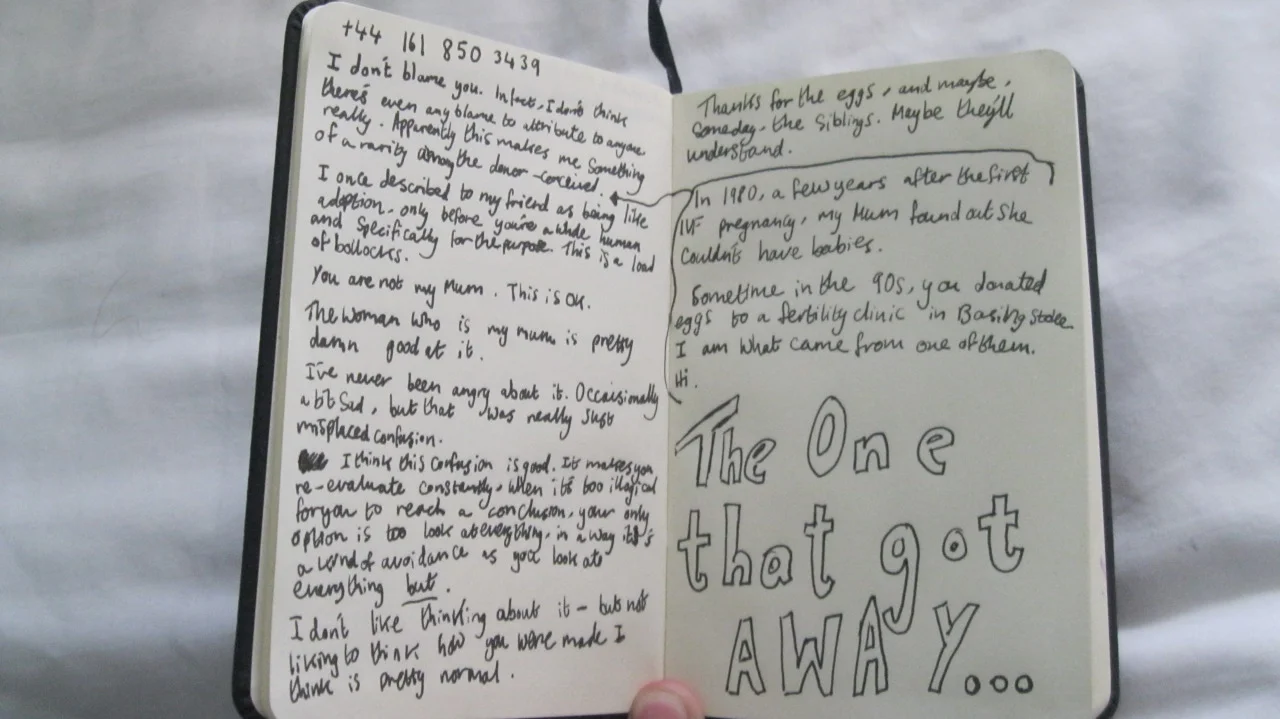 +44 161 850 3439
I don't blame you. Infact, I don't think
there's even any blame to attribute to anyone
really. Apparently this makes me Something
of a rarity among the donor-conceived.
I once described to my friend as being like
adoption, only before you're a whole human
and specifically for the purpose. This is a load
of bollocks.
You are not my Mum. This is OK.
The woman who is my mum is pretty
damn good at it.
I've never been angry about it. Occaisionally
a bit Sad, but that was really Just
misplaced confusion.
I think this confusion is good. It makes you
re-evaluate constantly, when it's too illogical
for you to reach a conclusion, your only
option is too look at everything, in a way it's
a kind of avoidance as you look at
everything but.
I don't like thinking about it - but not
liking to think how you were made I
think is pretty normal.
Thanks for the eggs, and maybe,
Someday, the Siblings. Maybe they'll
understand.
In 1980, a few years after the first
IVF pregnancy, my Mum found out She
Couldn't have babies.
Sometime in the 90s, you donated
eggs to a fertility clinic in Basingstoke.
I am what came from one of them.
Hi.
The One
that got
AWAY...